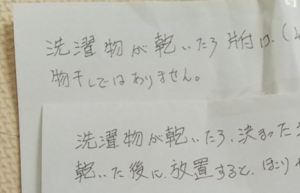 洗濯物が乾いたら片付け(
物干しではありません。
洗濯物が乾いたら、決まった
乾いた後に、放置すると、ほこり